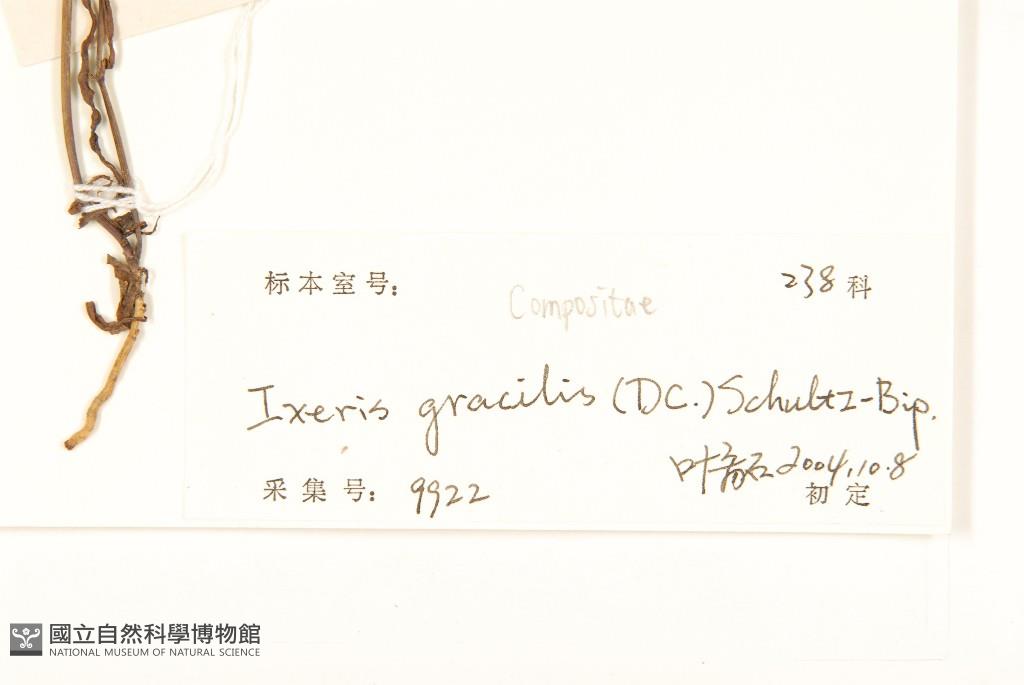 标本室号: 238科
Compositae
Ixeris gracilis (DC.) Schultz-Bip.
叶 2004.10.8
采集号: 9922 初定
國立自然科學博物館
NATIONAL MUSEUM OF NATURAL SCIENCE